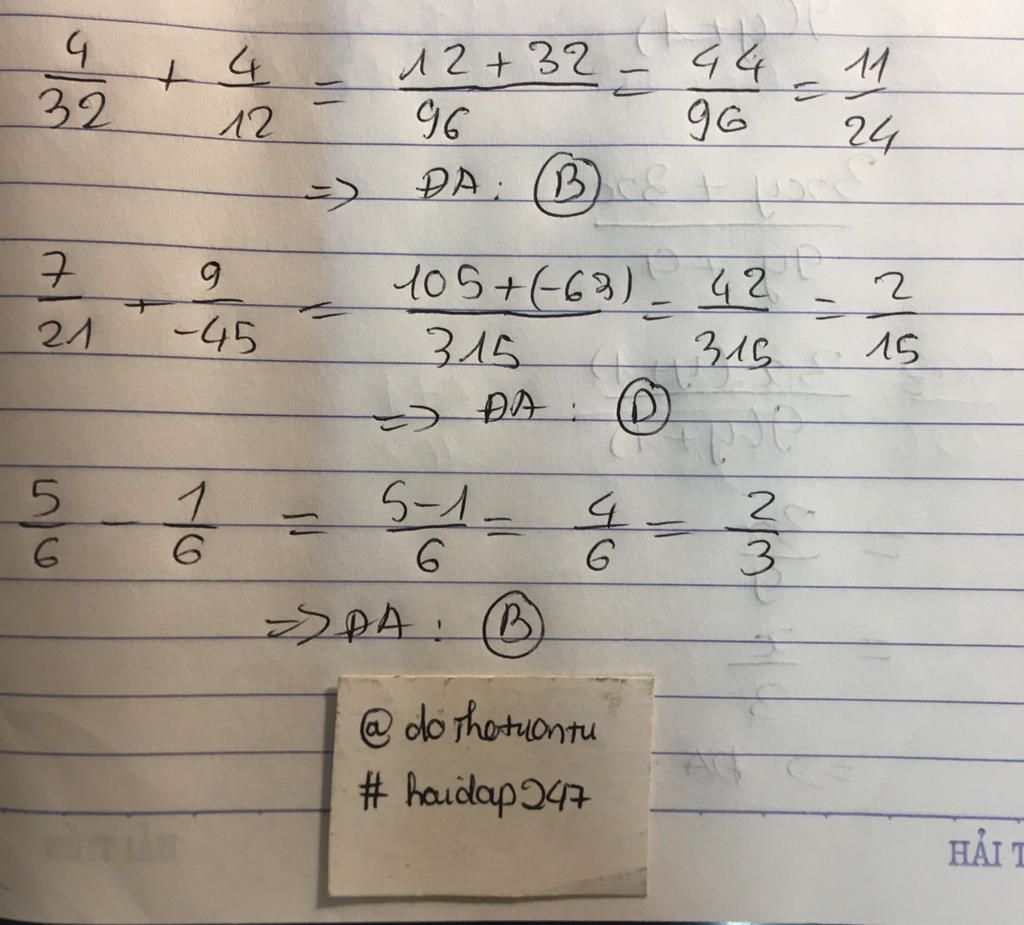 4/32 + 4/12 = 12 + 32/96 = 44/96 = 11/24
=> ĐA : B
7/21 + 9/-45 = 105 + (-63)/315 = 42/315 = 2/15
=> ĐA : D
5/6 - 1/6 = 5-1/6 = 4/6 = 2/3
=> ĐA : B
@dothetuantu
# hoidap247
HẢI T